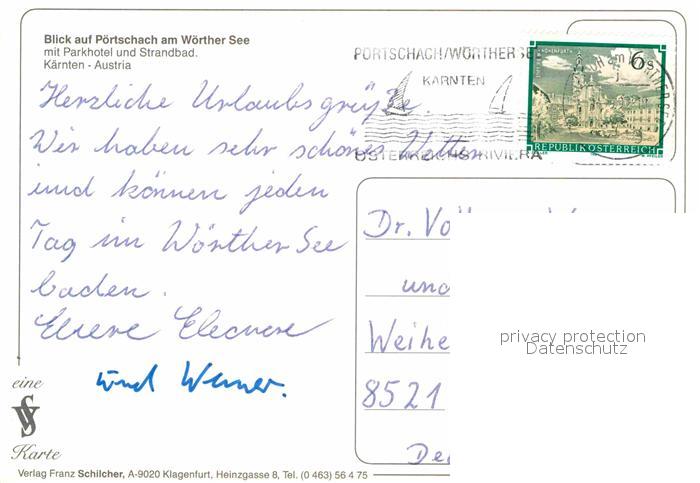 Blick auf Pörtschach am Wörther See
mit Parkhotel und Strandbad.
Kärnten - Austria
PÖRTSCHACH/WÖRTHERSEE
KÄRNTEN
ÖSTERREICHS RIVIERA
6 S
REPUBLIK ÖSTERREICH
Herzliche Urlaubsgrüße.
Wir haben sehr schönes Wetter
und können jeden
Tag im Wörther See
baden.
Eure Eleonore
und Werner.
Dr. Vo
und
Weihe
8521
De
privacy protection
Datenschutz
eine
VS
Karte
Verlag Franz Schilcher, A-9020 Klagenfurt, Heinzgasse 8, Tel. (0 463) 56 4 75